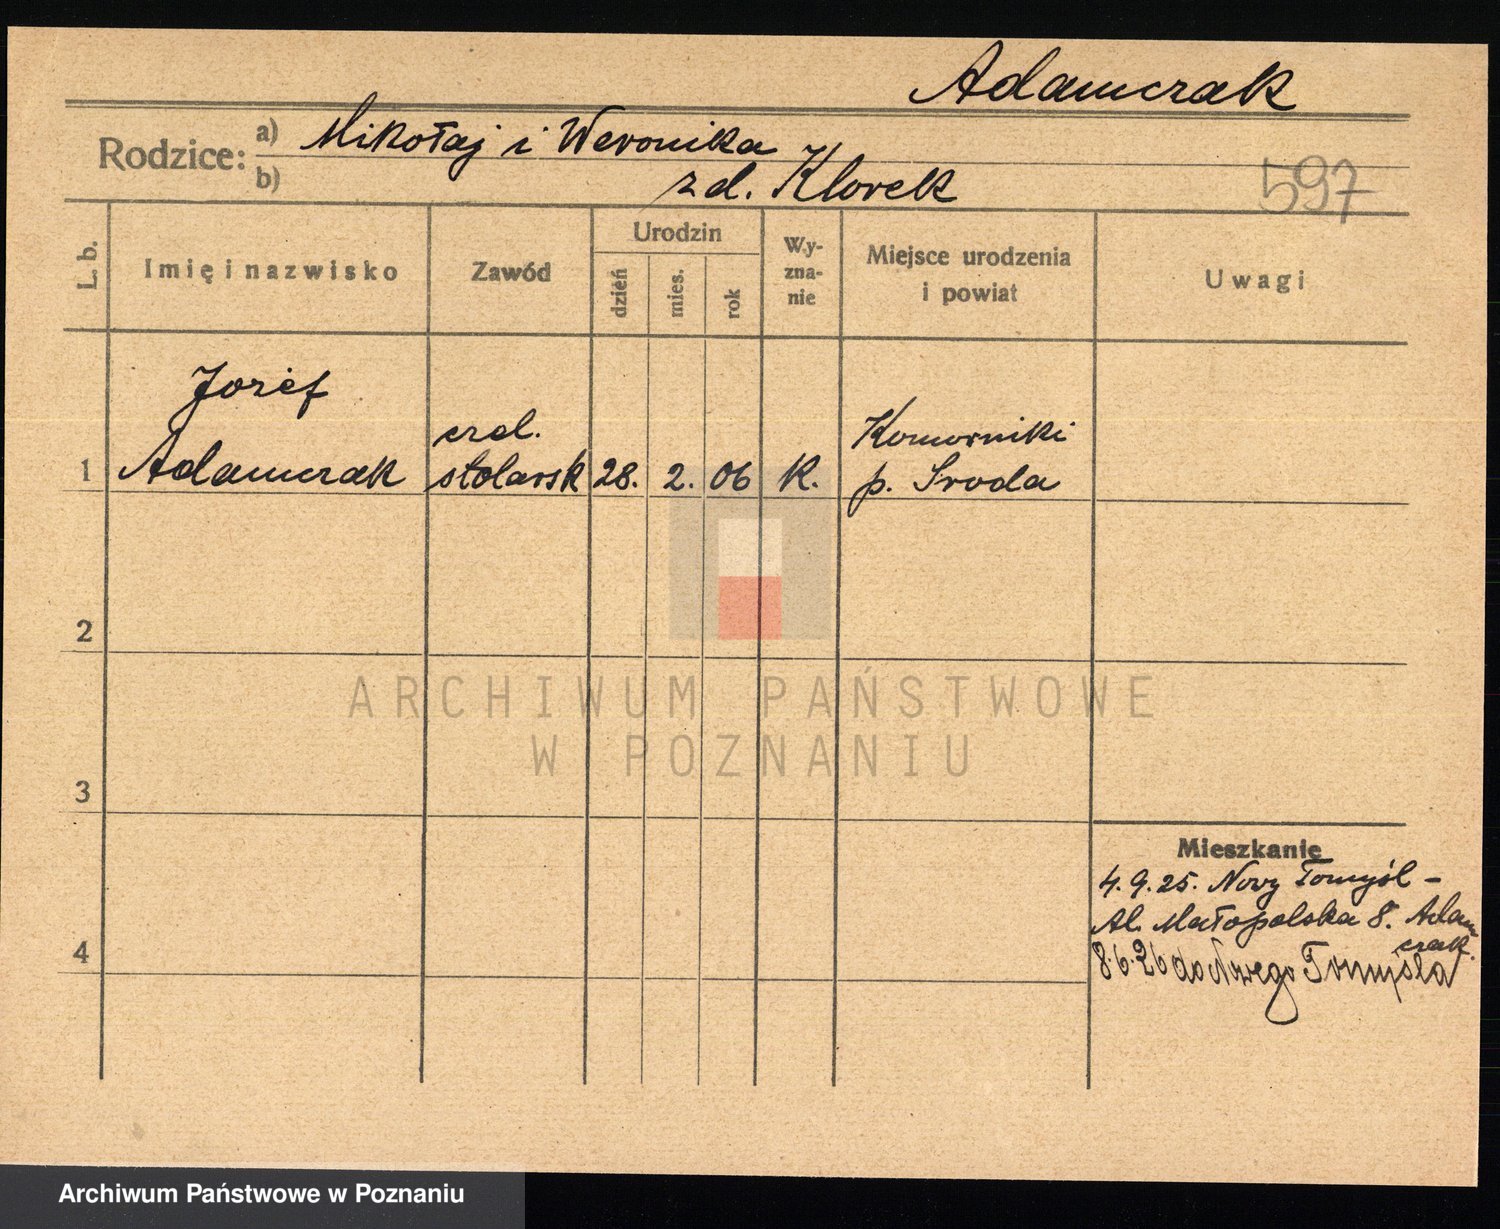 Adamczak
Rodzice: a) Mikołaj i Weronika
b) zd. Klorek
597
L. b.
Imię i nazwisko
Zawód
Urodzin
dzień
mies.
rok
Wy-
zna-
nie
Miejsce urodzenia
i powiat
Uwagi
Józef
czel. Komorniki
1 Adamczak stolarsk 28. 2. 06 K. p. Sroda
2
ARCHIWUM PAŃSTWOWE
W POZNANIU
3
Mieszkanie
4. 9. 25. Nowy Tomyśl -
Al. Małopolska 8. Adam
czak.
4
8.6.26 do Nowego Tomyśla
Archiwum Państwowe w Poznaniu